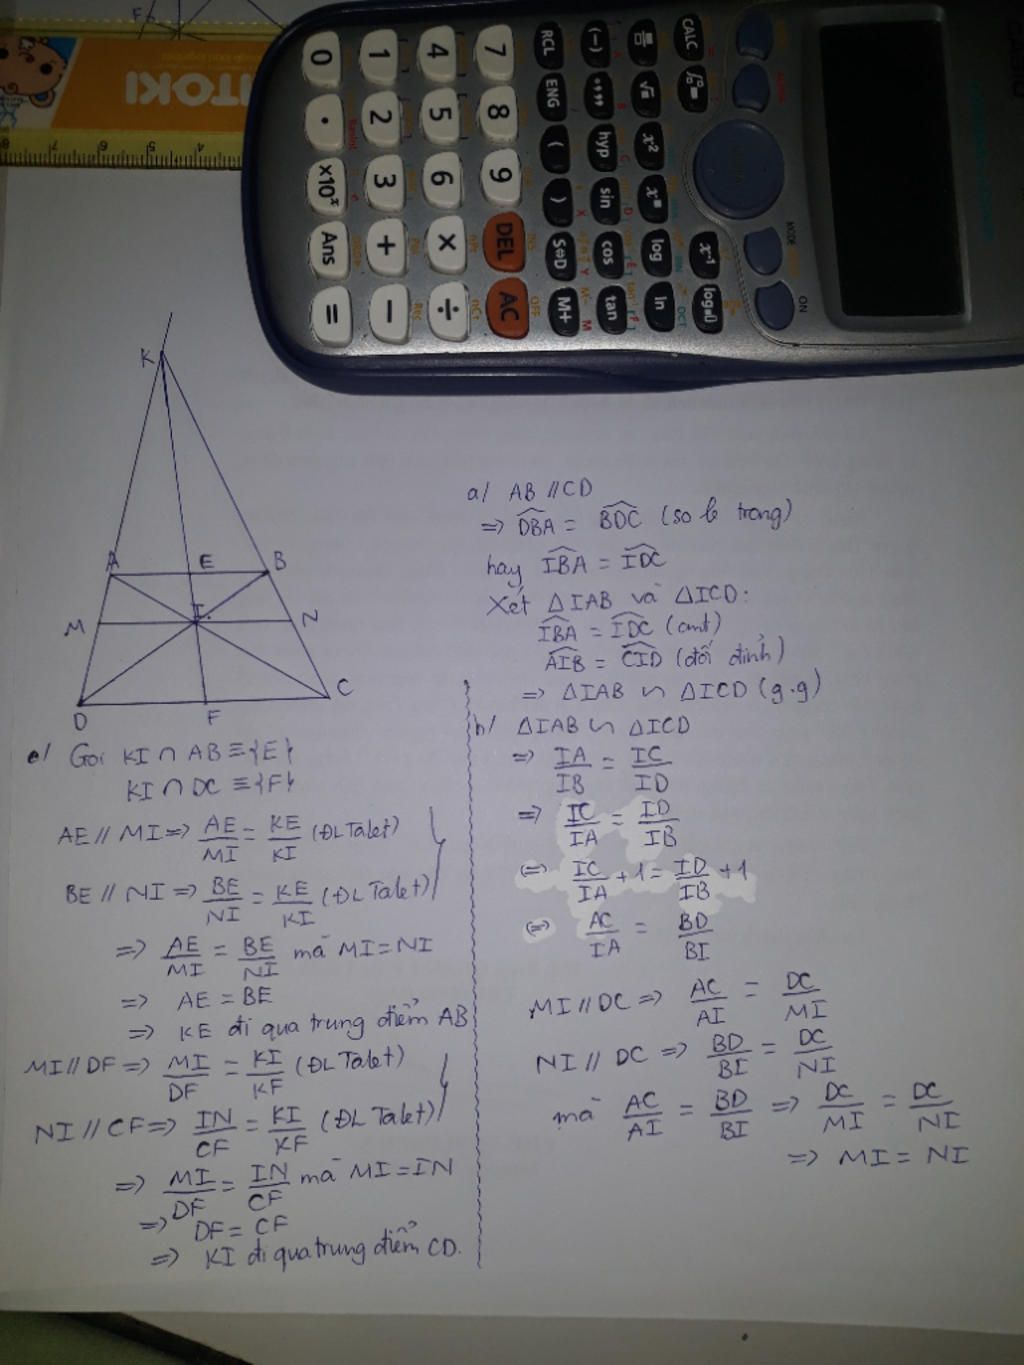 ITOKI
8 7 6 5 4
0 1 4 7 RCL (-) CALC
. 2 5 8 ENG °,,, √ ∫
×10ˣ 3 6 9 ( hyp x²
) sin xⁿ
Ans + × DEL S⇔D cos log x⁻¹
= − ÷ AC M+ tan ln log
MODE
ON
OFF
K
A E B
M I N
D F C
a/ AB // CD
=> DBA = BDC (so le trong)
hay IBA = IDC
Xét △IAB và △ICD:
IBA = IDC (cmt)
AIB = CID (đối đỉnh)
=> △IAB ∽ △ICD (g.g)
b/ △IAB ∽ △ICD
=> IA/IB = IC/ID
=> IC/IA = ID/IB
(=) IC/IA + 1 = ID/IB + 1
(=) AC/IA = BD/BI
MI // DC => AC/AI = DC/MI
NI // DC => BD/BI = DC/NI
mà AC/AI = BD/BI => DC/MI = DC/NI
=> MI = NI
c/ Gọi KI ∩ AB ≡ {E}
KI ∩ DC ≡ {F}
AE // MI => AE/MI = KE/KI (ĐL Talet)
BE // NI => BE/NI = KE/KI (ĐL Talet)
=> AE/MI = BE/NI mà MI = NI
=> AE = BE
=> KE đi qua trung điểm AB
MI // DF => MI/DF = KI/KF (ĐL Talet)
NI // CF => IN/CF = KI/KF (ĐL Talet)
=> MI/DF = IN/CF mà MI = IN
=> DF = CF
=> KI đi qua trung điểm CD.